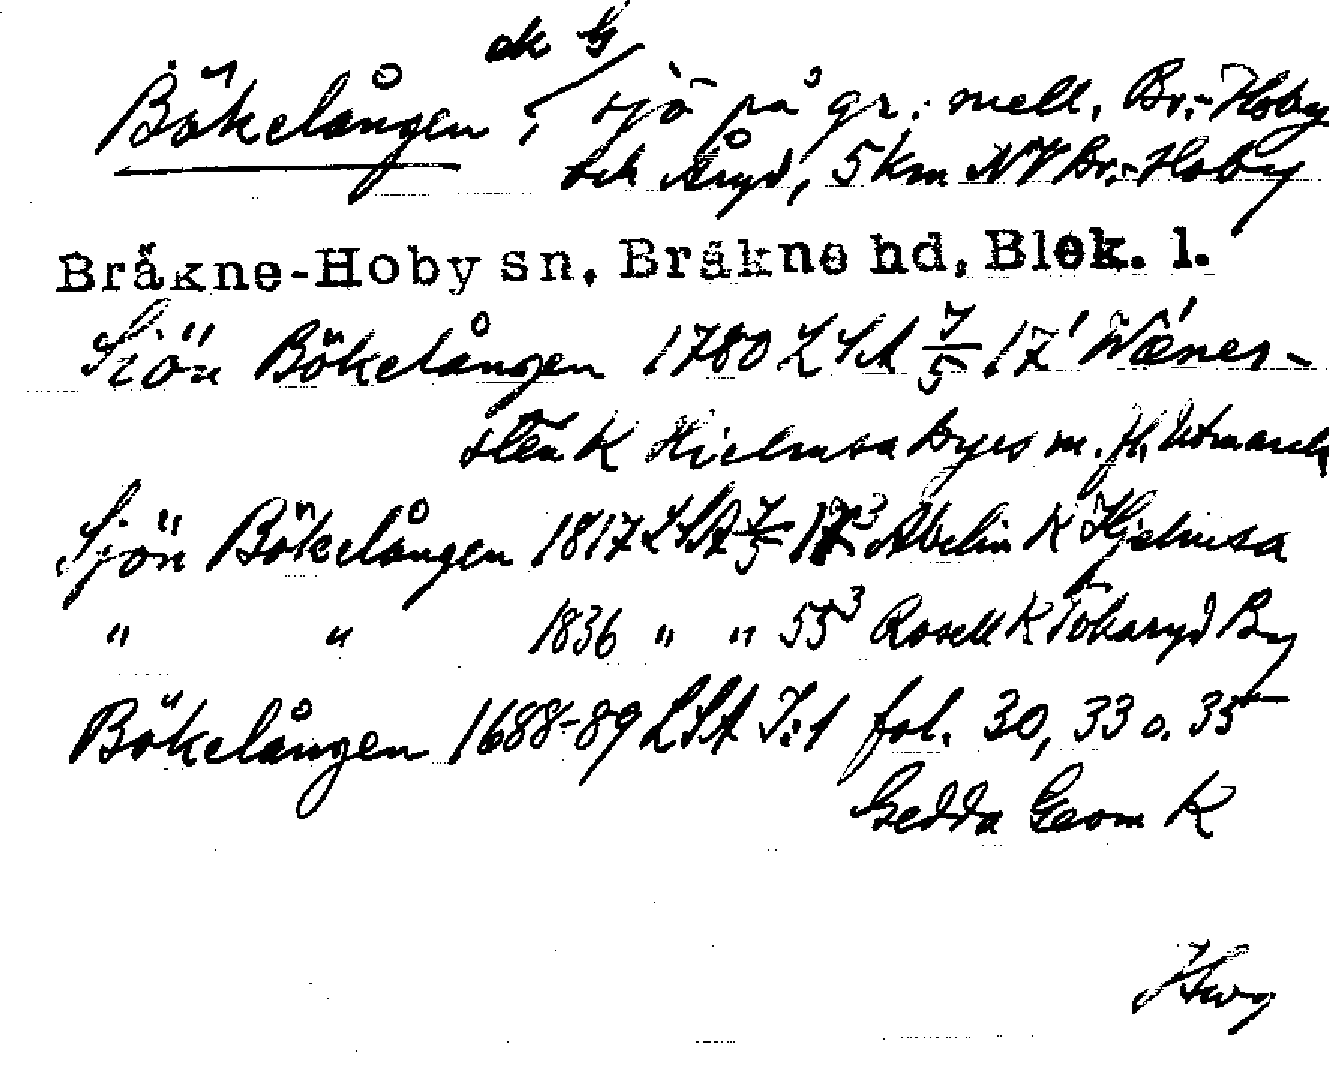 ek G
Bökelången, sjö på gr. mell. Br.-Hoby
och Åryd, 5 km NV Br.-Hoby
Bräkne-Hoby sn, Bräkne hd, Blek. l.
Siön Bökelången 1780 LSA 7/5 17' Wæner-
sten K Hielmsa Byes m. fl. Utmark
Sjön Bökelången 1817 LSA 7/5 17³ Abelin K Hjelmsa
" " 1836 " " 55³ Rosell K Tokaryd By
Bökelången 1688-89 LSA I:1 fol. 30, 33 o. 35
Gedda Geom K